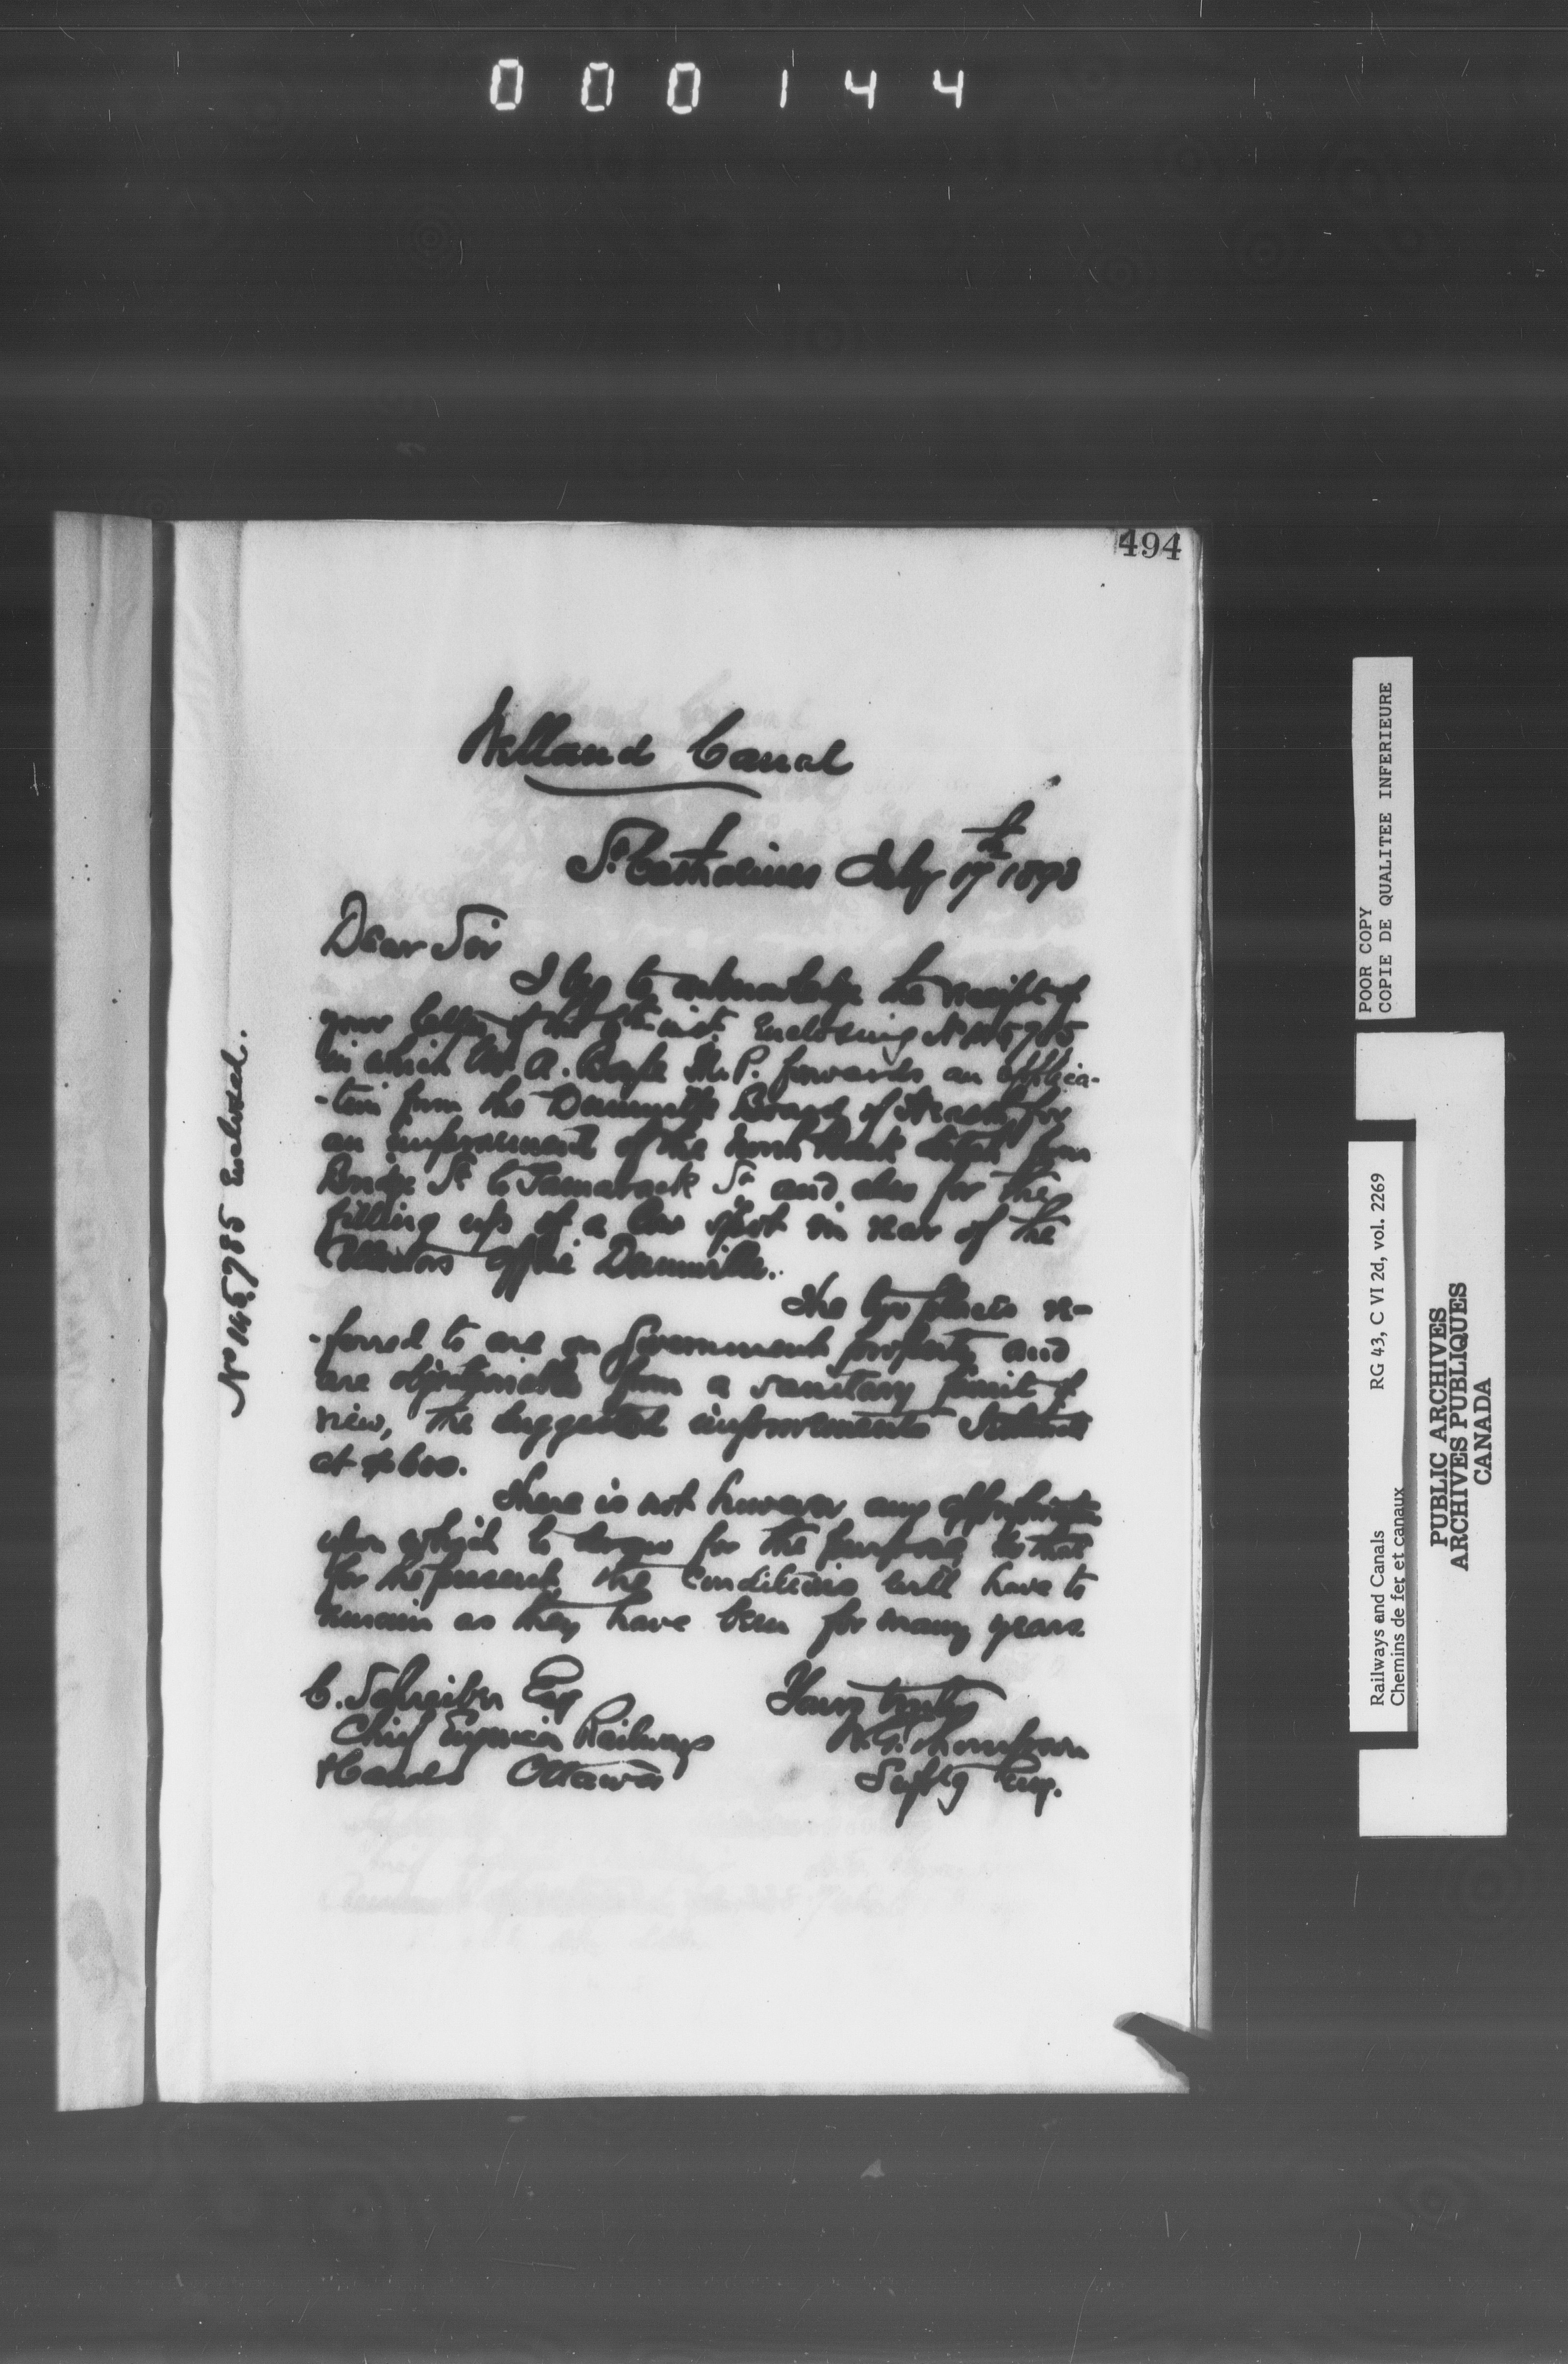 000144
494
Welland Canal
St. Catharines July 17th 1893
Dear Sir
I beg to acknowledge the receipt of
your letter of the inst. Enclosing No 145785
in which Mr. A. Boyle M.P. forwards an applica-
-tion from the Dunnville Board of Health for
an improvement of the north bank ditch from
Bridge St to Tamarack St and also for the
filling up of a low spot in rear of the
Collectors office Dunnville.
The two places re-
-ferred to are on Government property and
are objectionable from a sanitary point of
view, the suggested improvements
at $600.
There is not however any appropriation
upon which to draw for the purpose so that
for the present the Conditions will have to
remain as they have been for many years.
Yours truly
W.G. Thompson
Suptg Eng.
C. Schreiber Esq
Chief Engineer Railways
& Canals Ottawa
No 145785 Enclosed.
POOR COPY
COPIE DE QUALITEE INFERIEURE
Railways and Canals RG 43, C VI 2d, vol. 2269
Chemins de fer et canaux
PUBLIC ARCHIVES
ARCHIVES PUBLIQUES
CANADA